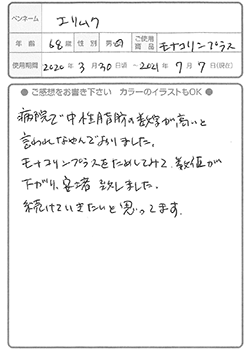 ペンネーム エリムク
年齢 68歳 性別 男・女 ご使用商品 モナコリンプラス
使用期間 2020年3月30日頃〜2021年7月7日(現在)
● ご感想をお書き下さい カラーのイラストもOK ●
病院で中性脂肪の数字が高いと
言われなやんでおりました。
モナコリンプラスをためしてみて、数値が
下がり、安堵致しました。
続けていきたいと思ってます。